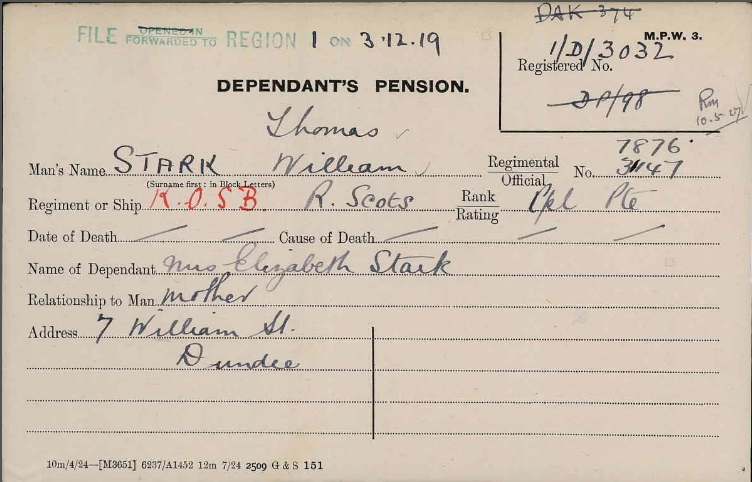 DAK 374
FILE OPENED IN FORWARDED TO REGION 1 ON 3.12.19
M.P.W. 3.
1/D/3032
Registered No.
DP/98
Rm
10.5.27
DEPENDANT'S PENSION.
Thomas
7876.
Man's Name STARK William Regimental Official No. 3147
(Surname first: in Block Letters)
Regiment or Ship K.O.S.B. R. Scots Rank Rating Cpl Pte
Date of Death Cause of Death
Name of Dependant Mrs Elizabeth Stark
Relationship to Man mother
Address 7 William St.
Dundee
10m/4/24—[M3651] 6237/A1452 12m 7/24 2509 G & S 151